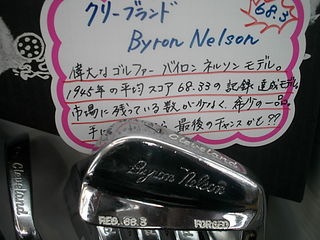 クリーブランド
Byron Nelson
68.3
偉大なゴルファー バイロン ネルソン モデル。
1945年の平均スコア 68.33の記録達成モデル。
市場に残っている数が少なく、希少の一品。
手に 最後のチャンスかも??
Cleveland
Byron Nelson
REG. 68.3 FORGED
Cleveland